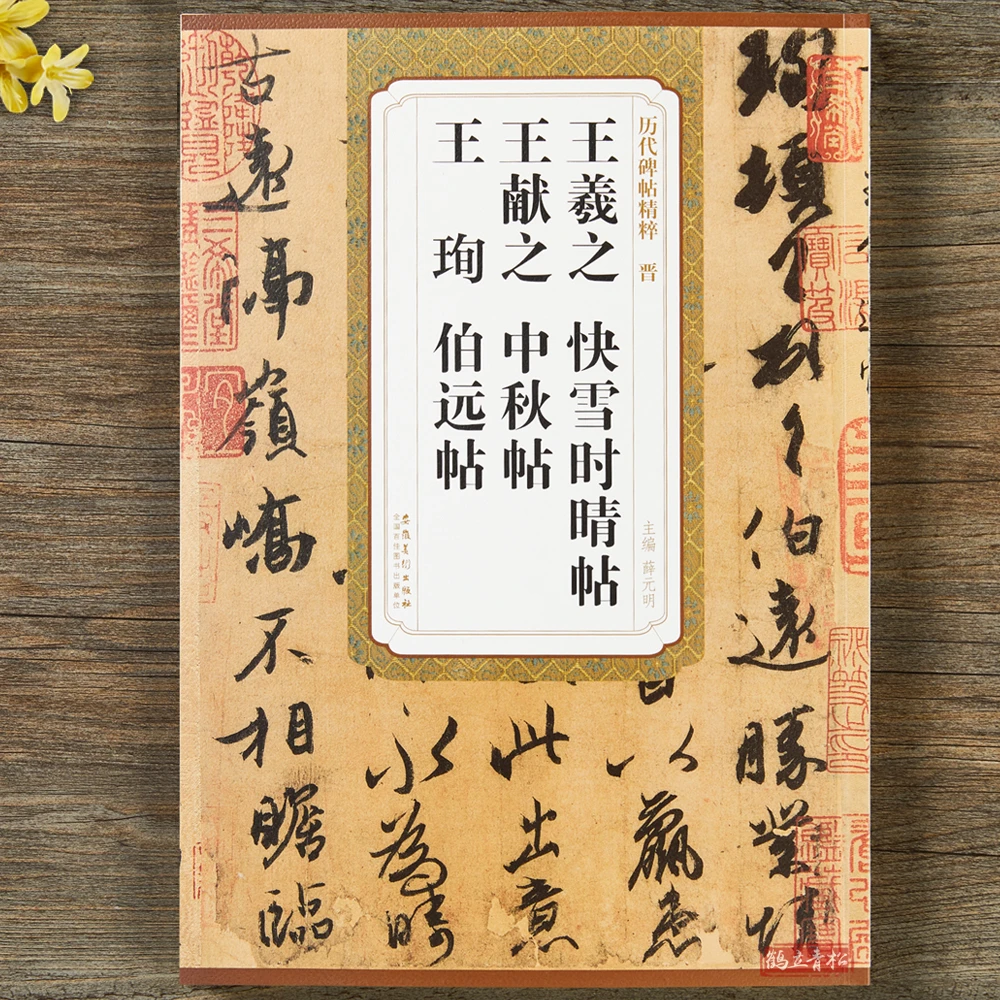 历代碑帖精粹 晋
主编 薛元明
王羲之 快雪时晴帖
王献之 中秋帖
王珣 伯远帖
安徽美术出版社
全国百佳图书出版单位
珣頓首頓首伯遠勝業情
以羸患
此出意
永為疇
古遠隔嶺嶠不相瞻臨
鹤立青松